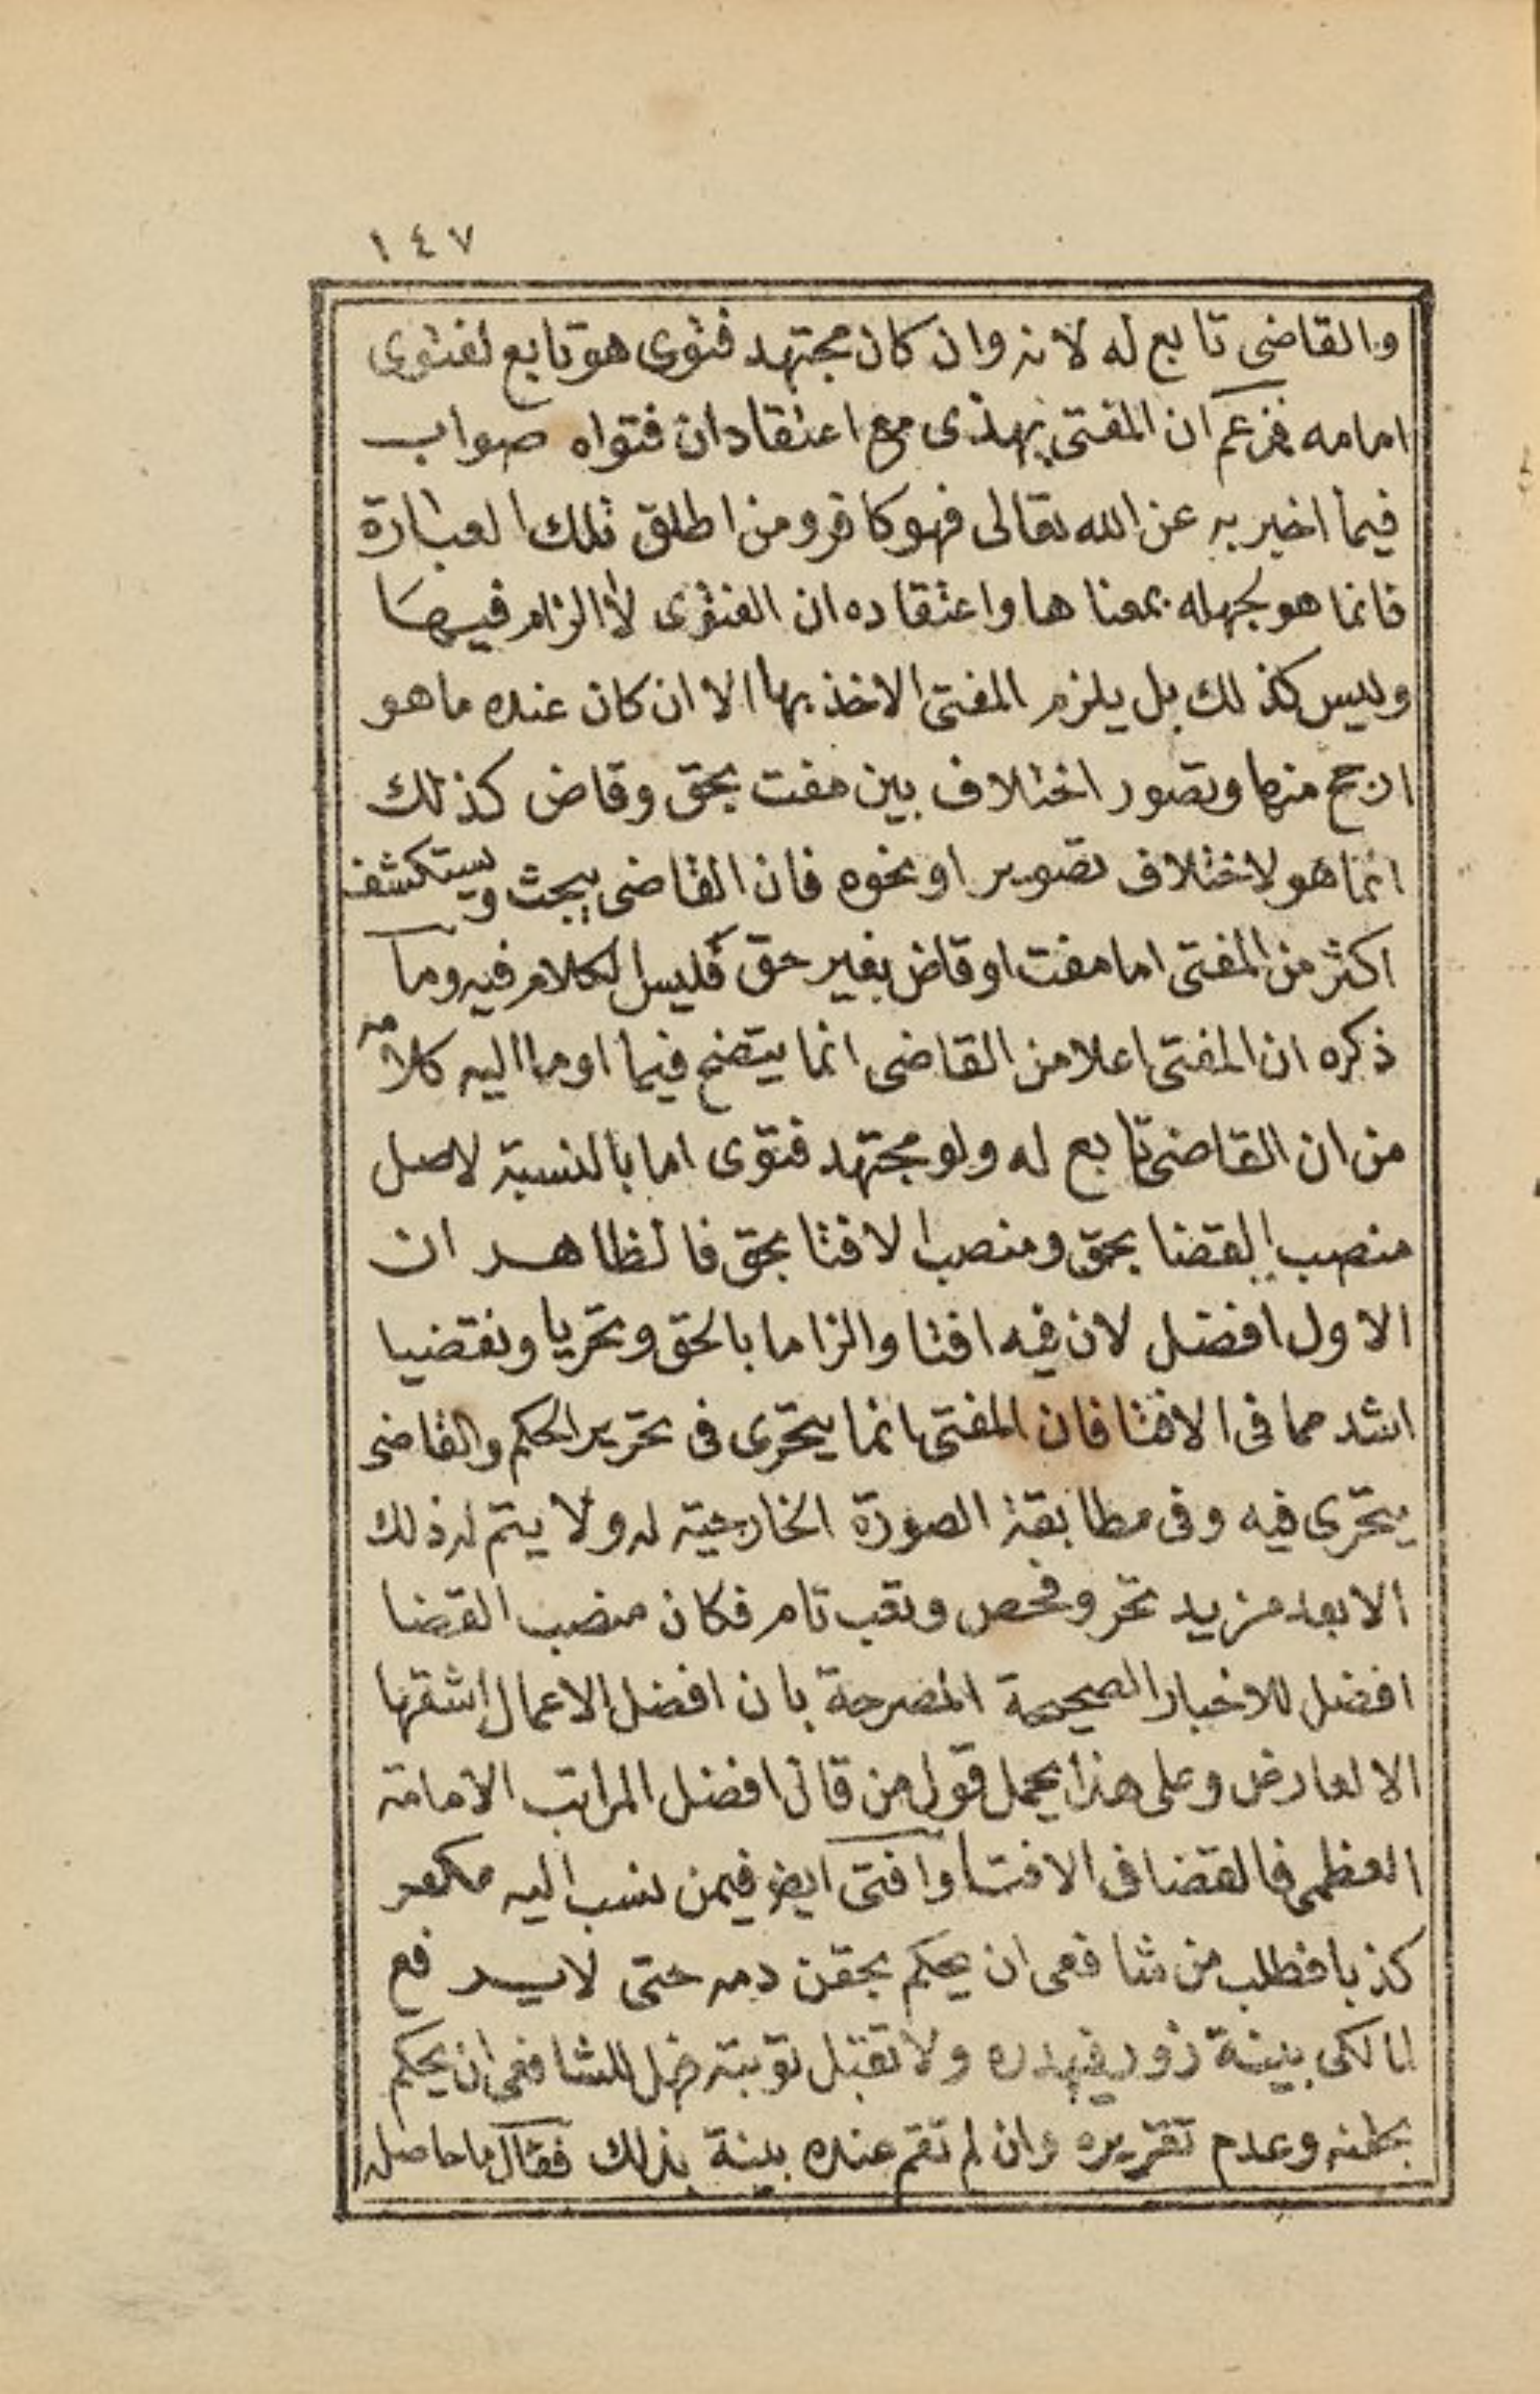 ١٤٧
والقاضى تابع له لانه وان كان مجتهد فتوى هو تابع لفتوى
امامه فمن زعم ان المفتى يهذى مع اعتقاد ان فتواه صواب
فيما اخبر به عن الله تعالى فهو كافر ومن اطلق تلك العبارة
فانما هو لجهله بمعناها واعتقاده ان الفتوى لا الزام فيها
وليس كذلك بل يلزم المفتى الاخذ بها الا ان كان عنده ما هو
ارجح منها وتصور اختلاف بين مفت بحق وقاض كذلك
انما هو لاختلاف تصوير او نحوه فان القاضى يبحث ويستكشف
اكثر من المفتى اما مفت او قاض بغير حق فليس الكلام فيه وما
ذكره ان المفتى اعلا من القاضى انما يتضح فيما اوما اليه كلامه
من ان القاضى تابع له ولو مجتهد فتوى اما بالنسبة لاصل
منصب القضا بحق ومنصب الافتا بحق فالظاهر ان
الاول افضل لان فيه افتا والزاما بالحق وتحريا وتقضيا
اشد مما فى الافتا فان المفتى انما يتحرى فى تحرير الحكم والقاضى
يتحرى فيه وفى مطابقة الصورة الخارجية له ولا يتم له ذلك
الا بعد مزيد تحر وفحص وتعب تام فكان منصب القضا
افضل للاخبار الصحيحة المصرحة بان افضل الاعمال اشقها
الا لعارض وعلى هذا يحمل قول من قال افضل المراتب الامامة
العظمى فالقضا فى الافتا وافتى ايضا فيمن نسب اليه مكفر
كذبا فطلب من شافعى ان يحكم بحقن دمه حتى لا يرفع
لمالكى ببينة زور فيهدره ولا تقبل توبته فهل للشافعى ان يحكم
بحقنه وعدم تعزيره وان لم تقم عنده بينة بذلك فقال ما حاصله